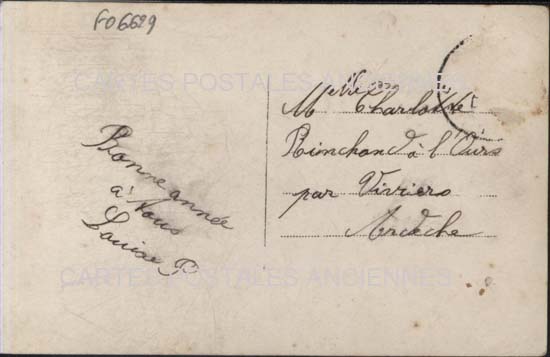 F06629
CARTES POSTALES ANCIENNES
Bonne année
à tous
Louise P.
Melle Charlotte
Rimchand à l'Ours
par Viviers
Ardèche
CARTES POSTALES ANCIENNES